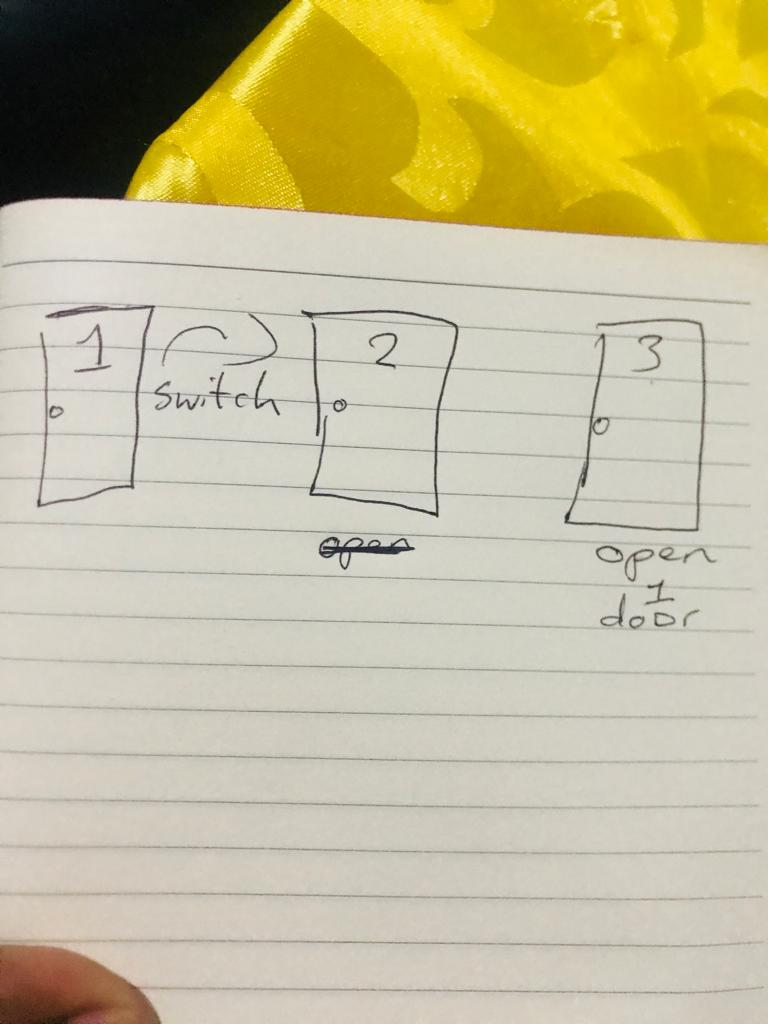 1
switch
2
open
3
open
1
door